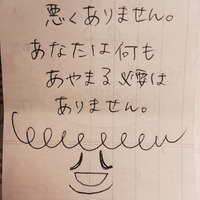 悪くありません。
あなたは何も
あやまる必要は
ありません。